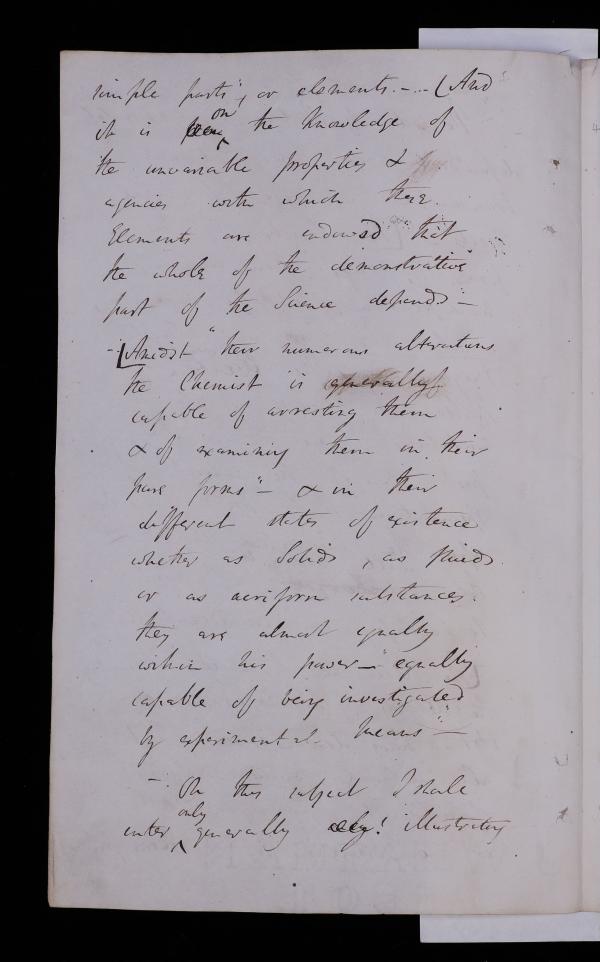 simple parts", or elements. - .. [And
it is on the Knowledge of
the unvariable properties &
agencies with which these
Elements are endowed "that
the whole of the demonstrative
part of the Science depends" -
- [Amidst "their numerous alterations
the Chemist is generally
capable of arresting them
& of examining them in their
pure forms" - & in their
different states of existence
whether as Solids, as fluids
or as aeriform substances.
they are almost equally
within his power - "equally
capable of being investigated
by experimental means" -
- On this subject I shall
enter only generally illustrating